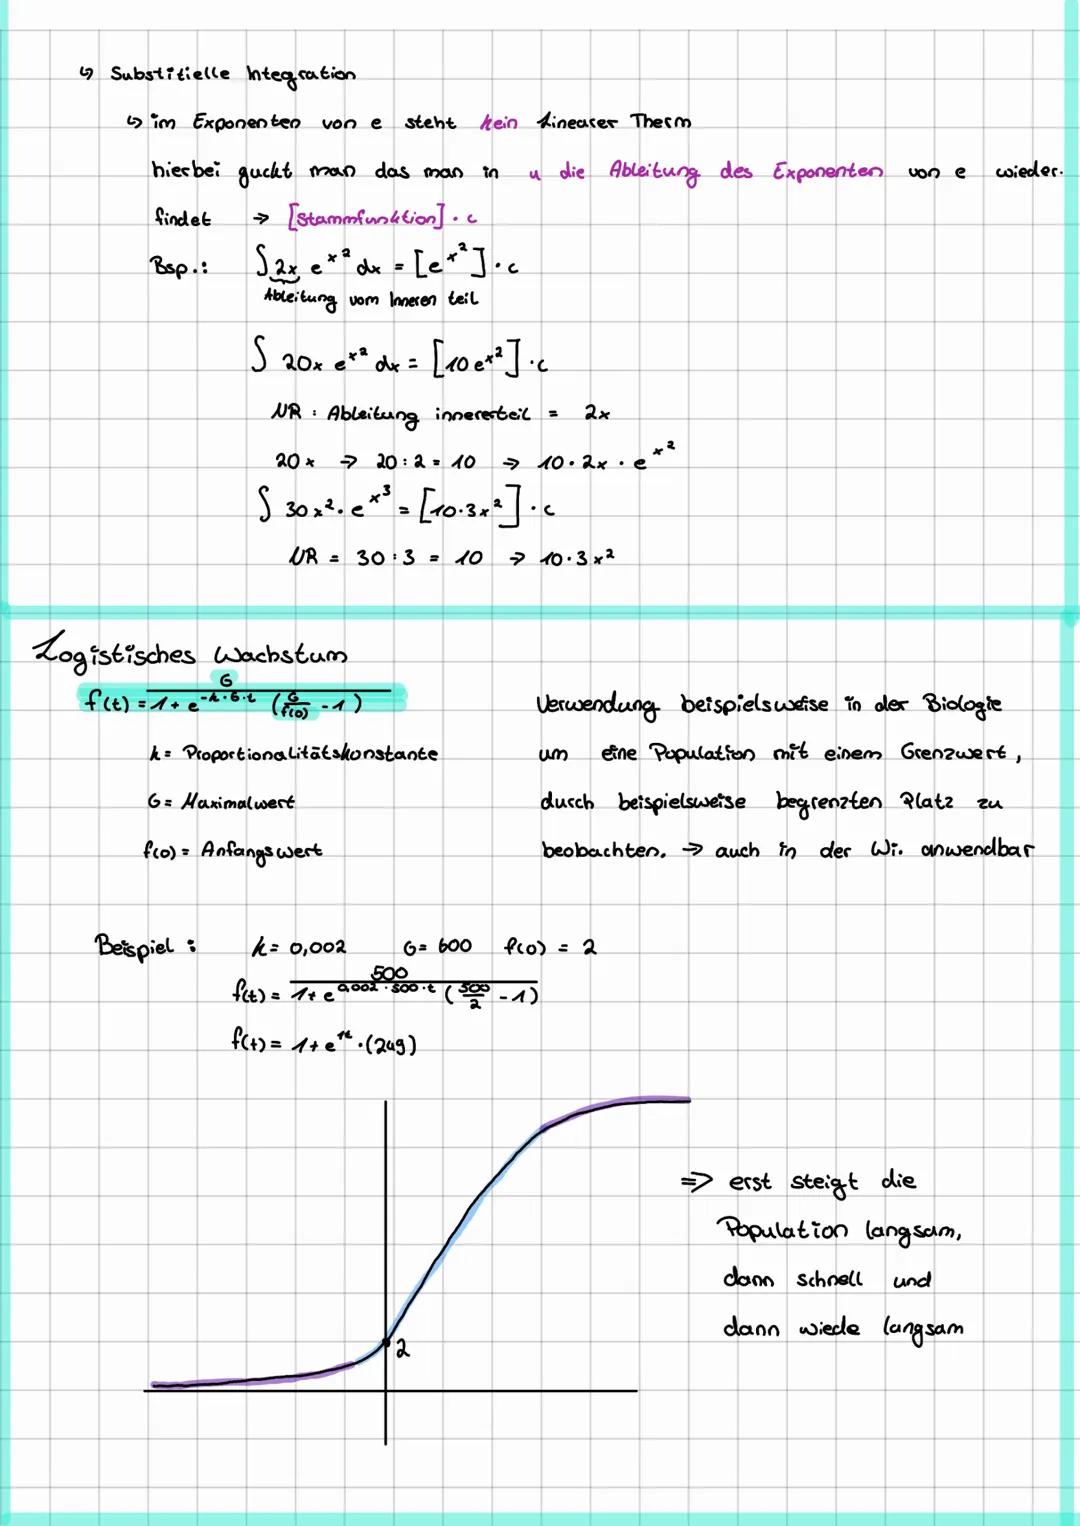 ↳ Substitielle Integration
↳ im Exponenten von e steht kein Linearer Therm
hierbei guckt man das man in u die Ableitung des Exponenten von e wieder.
findet → [Stammfunktion] · c
Bsp.: ∫ 2x e^x² dx = [e^x²] · c
Ableitung vom Inneren teil
∫ 20x e^x² dx = [10 e^x²] · c
NR : Ableitung innererteil = 2x
20x → 20 : 2 = 10 → 10 · 2x · e^x²
∫ 30x² · e^x³ = [10·3x²] · c
NR = 30 : 3 = 10 → 10·3x²
Logistisches Wachstum
f(t) = G / 1 + e^-k·G·t (G/f(0) - 1)
k = Proportionalitätskonstante
G = Maximalwert
f(0) = Anfangswert
Verwendung beispielsweise in der Biologie
um eine Population mit einem Grenzwert,
durch beispielsweise begrenzten Platz zu
beobachten. → auch in der Wi. anwendbar
Beispiel : k = 0,002 G = 600 f(0) = 2
f(t) = 500 / 1 + e^0,002·500·t (500/2 - 1)
f(t) = 1 + e^1t · (249)
2
⇒ erst steigt die
Population langsam,
dann schnell und
dann wiede langsam